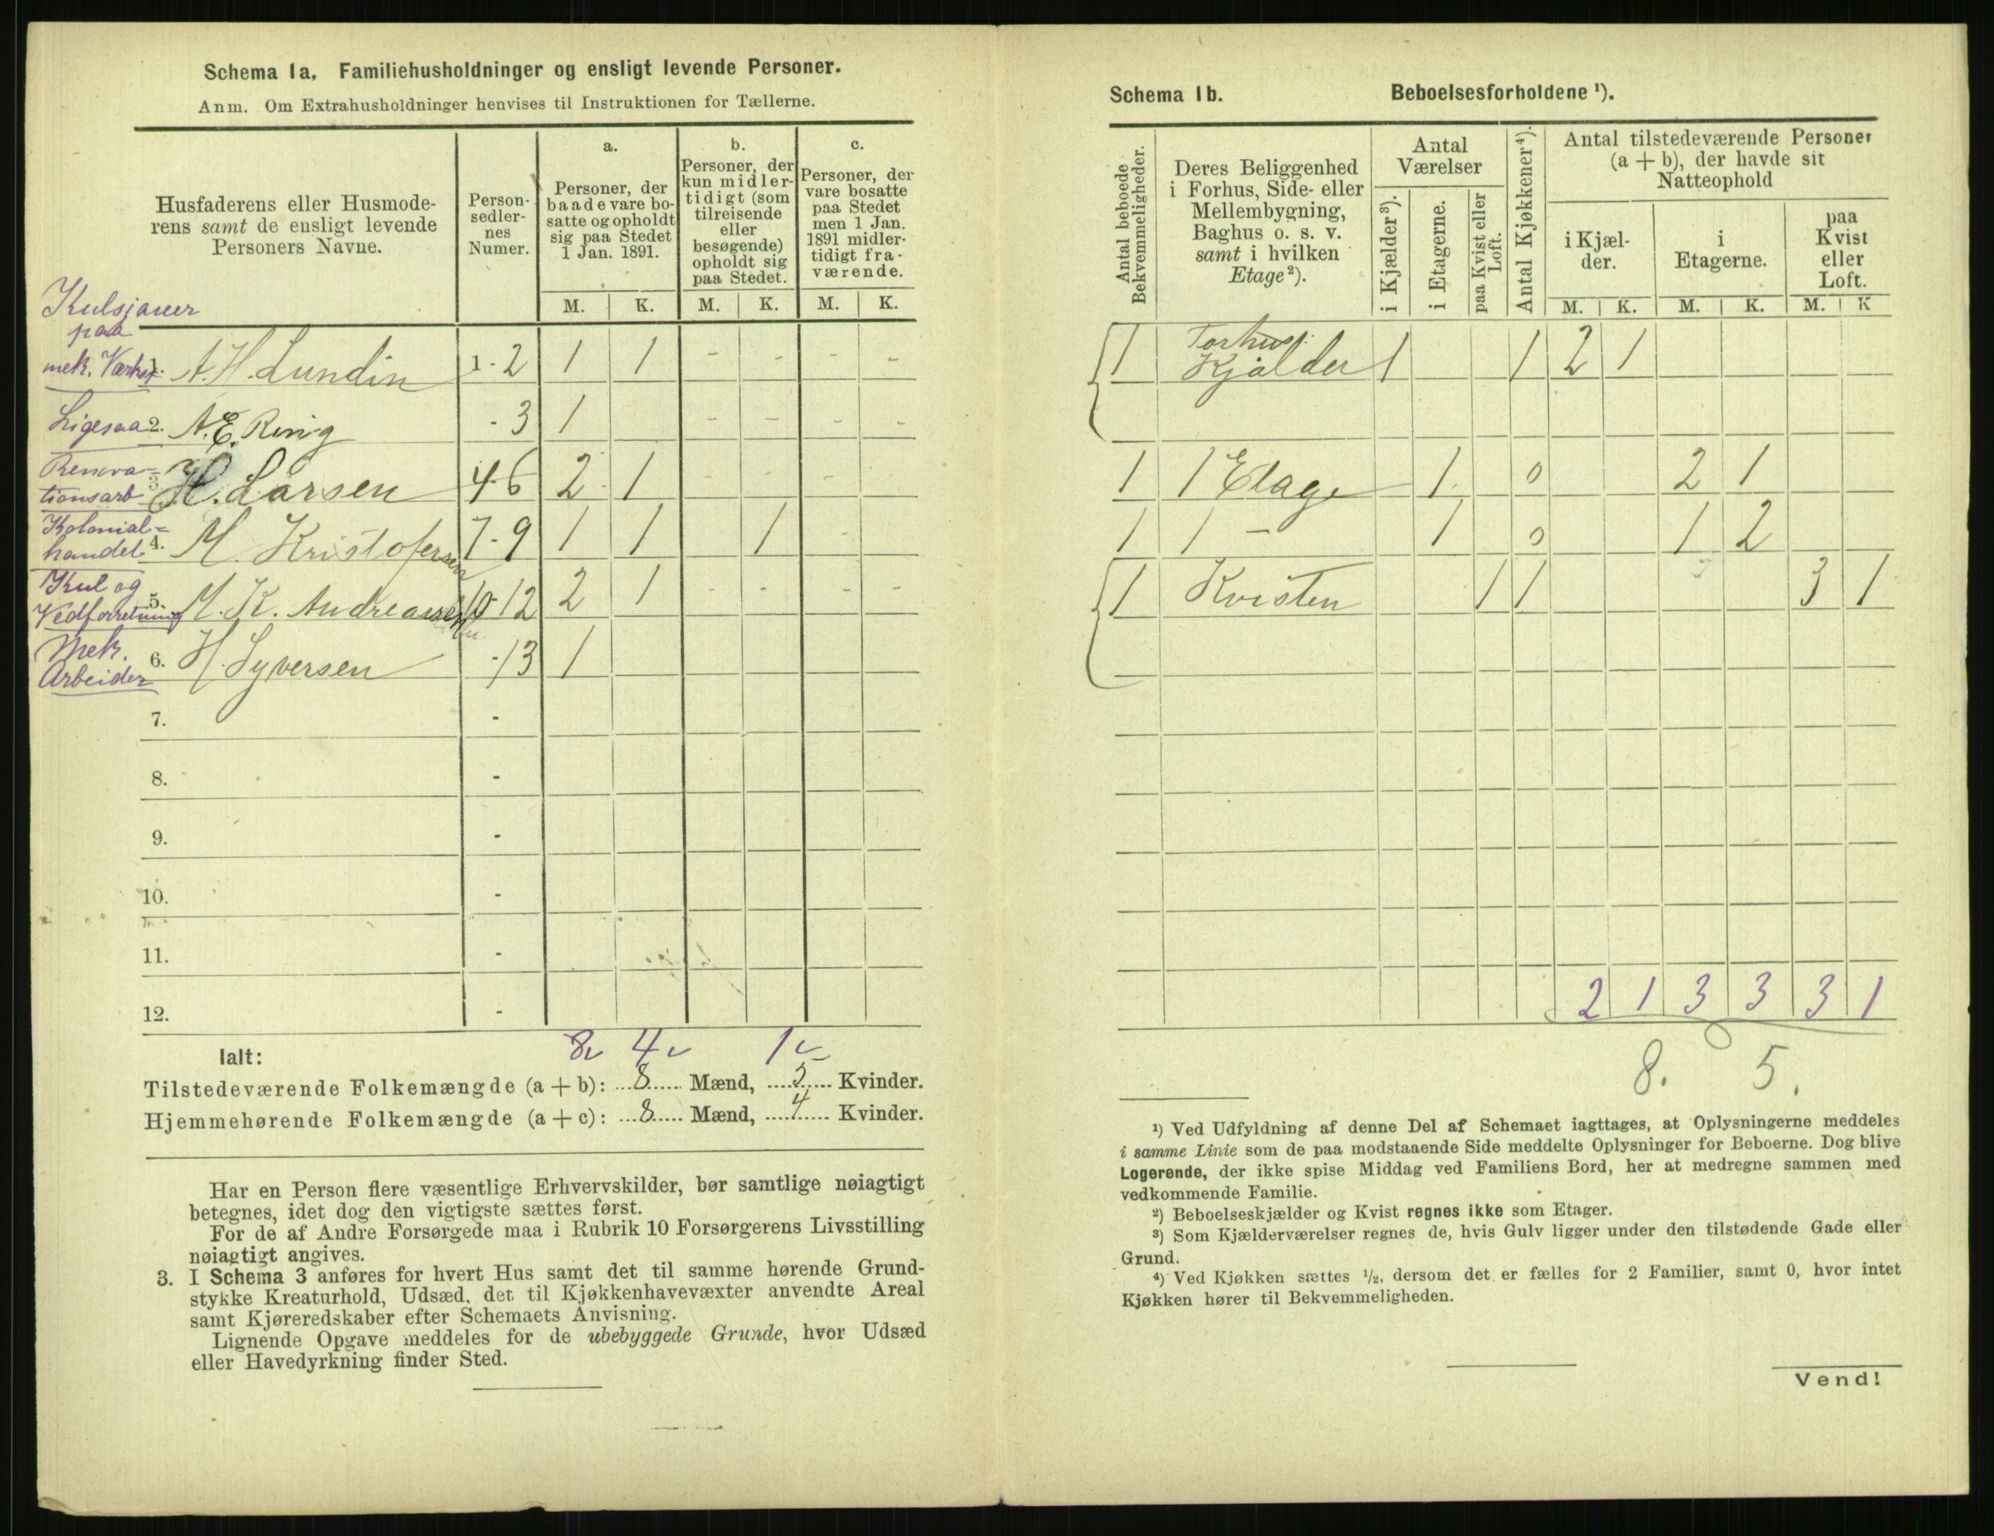 Schema 1a. Familiehusholdninger og ensligt levende Personer.
Anm. Om Extrahusholdninger henvises til Instruktionen for Tællerne.
Husfaderens eller Husmode-
rens samt de ensligt levende
Personers Navne.
Person-
sedler-
nes
Numer.
a.
Personer, der
baade vare bo-
satte og opholdt
sig paa Stedet
1 Jan. 1891.
b.
Personer, der
kun midler-
tidigt (som
tilreisende
eller
besøgende)
opholdt sig
paa Stedet.
c.
Personer, der
vare bosatte
paa Stedet
men 1 Jan.
1891 midler-
tidigt fra-
værende.
M. K. M. K. M. K.
Kulsjauer
paa
mek. Værkst. 1. A. H. Lundin 1-2 1 1 - - - -
Ligesaa 2. A. E. Ring - 3 1 - - - -
Renova-
tionsarb 3. H. Larsen 4-6 2 1 - - - -
Kolonial-
handel 4. M. Kristofersen 7-9 1 1 1 - -
Kul og
Vedforretning 5. M. K. Andreassen 10-12 2 1 - - - -
Mek.
Arbeider 6. H. Syversen -13 1
7. -
8. -
9. -
10. -
11. -
12. -
Ialt: 8 4 1
Tilstedeværende Folkemængde (a + b): 8 Mænd, 5 Kvinder.
Hjemmehørende Folkemængde (a + c): 8 Mænd, 4 Kvinder.
Har en Person flere væsentlige Erhvervskilder, bør samtlige nøiagtigt
betegnes, idet dog den vigtigste sættes først.
For de af Andre Forsørgede maa i Rubrik 10 Forsørgerens Livsstilling
nøiagtigt angives.
3. I Schema 3 anføres for hvert Hus samt det til samme hørende Grund-
stykke Kreaturhold, Udsæd, det til Kjøkkenhavevæxter anvendte Areal
samt Kjøreredskaber efter Schemaets Anvisning.
Lignende Opgave meddeles for de ubebyggede Grunde, hvor Udsæd
eller Havedyrkning finder Sted.
Schema 1b. Beboelsesforholdene ¹).
Antal beboede
Bekvemmeligheder.
Deres Beliggenhed
i Forhus, Side- eller
Mellembygning,
Baghus o. s. v.
samt i hvilken
Etage²).
Antal
Værelser
i Kjælder³).
i Etagerne.
paa Kvist eller
Loft.
Antal Kjøkkener⁴).
Antal tilstedeværende Personer
(a + b), der havde sit
Natteophold
i Kjæl-
der.
i
Etagerne.
paa
Kvist
eller
Loft.
M. K. M. K. M. K
1 Forhus: Kjålder 1 1 2 1
1 1 Etage 1 0 2 1
1 1 - 1 0 1 2
1 Kvisten 1 1 3 1
2 1 3 3 3 1
8. 5.
¹) Ved Udfyldning af denne Del af Schemaet iagttages, at Oplysningerne meddeles
i samme Linie som de paa modstaaende Side meddelte Oplysninger for Beboerne. Dog blive
Logerende, der ikke spise Middag ved Familiens Bord, her at medregne sammen med
vedkommende Familie.
²) Beboelseskjælder og Kvist regnes ikke som Etager.
³) Som Kjælderværelser regnes de, hvis Gulv ligger under den tilstødende Gade eller
Grund.
⁴) Ved Kjøkken sættes ¹/₂, dersom det er fælles for 2 Familier, samt 0, hvor intet
Kjøkken hører til Bekvemmeligheden.
Vend!